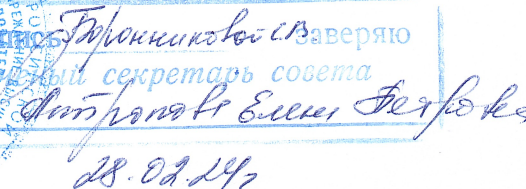 пись Боронниковой С.В. заверяю
ный секретарь совета
Антропова Елена Петровна
28.02.24г